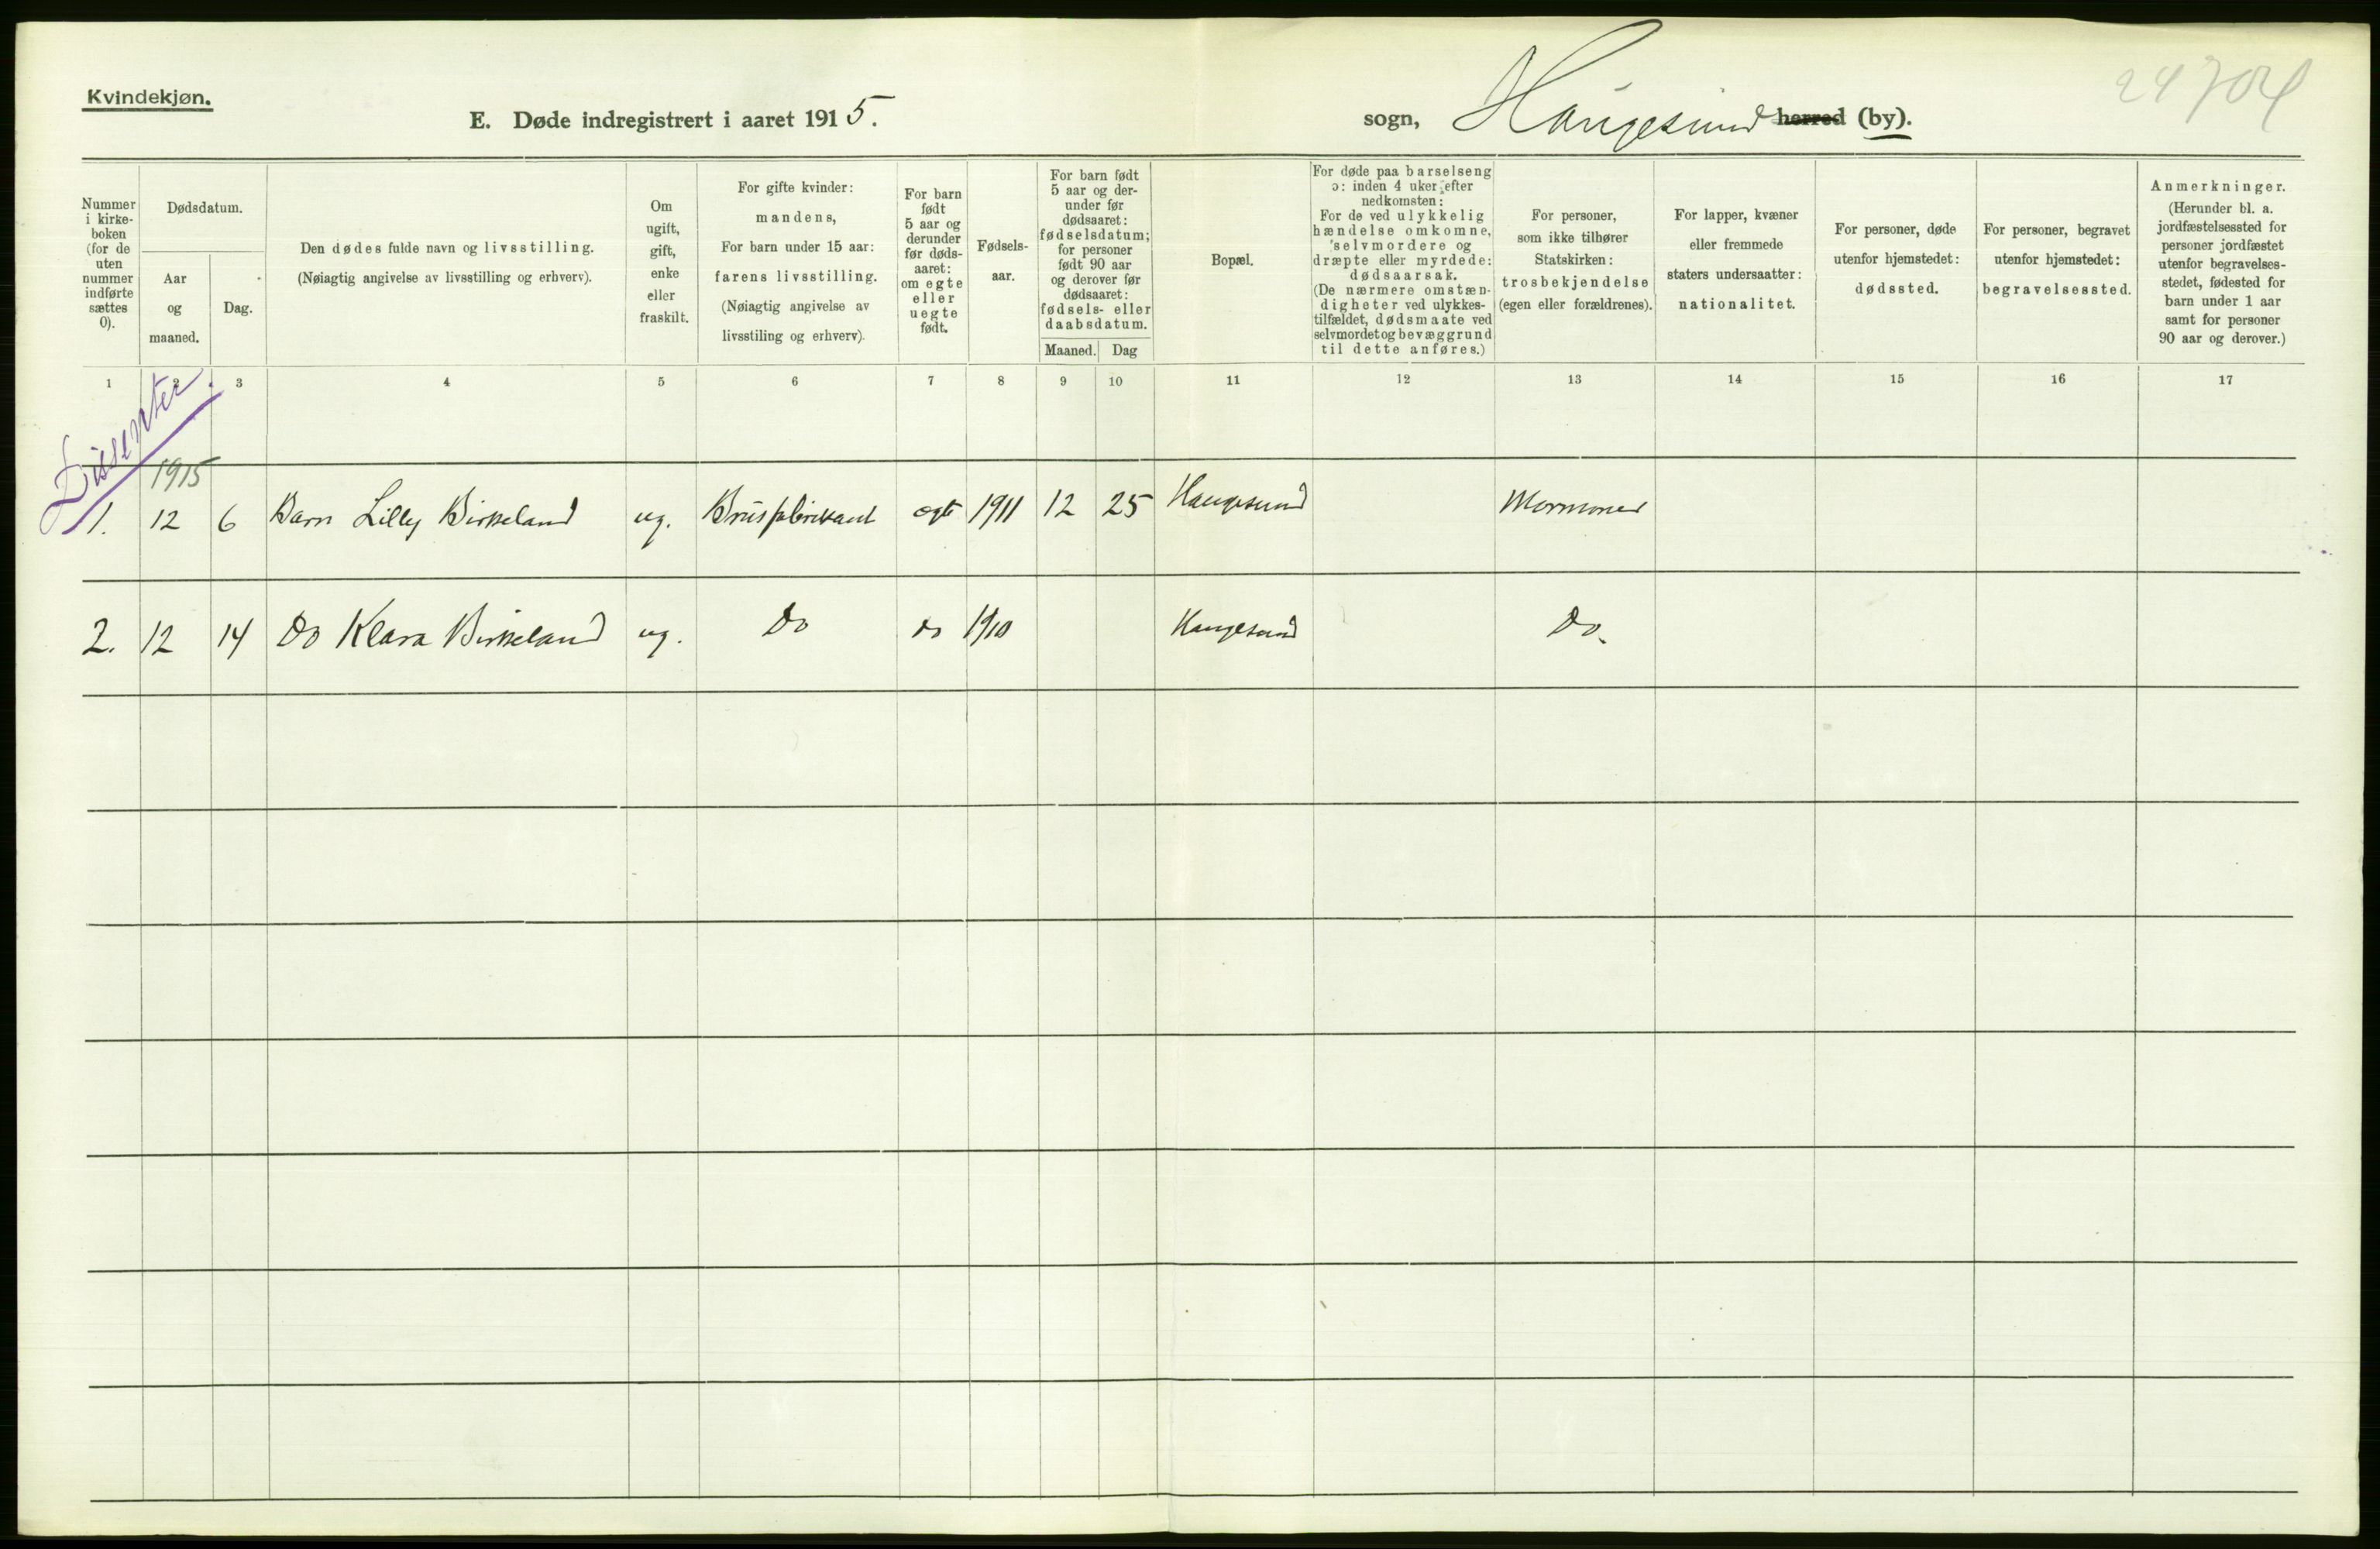 Kvindekjøn.
24 704
E. Døde indregistrert i aaret 1915. sogn, Haugesund herred (by).
Nummer i kirke-boken (for de uten nummer indførte sættes 0).
Dødsdatum.
Aar og maaned.
Dag.
Den dødes fulde navn og livsstilling.
(Nøiagtig angivelse av livsstilling og erhverv).
Om ugift, gift, enke eller fraskilt.
For gifte kvinder: mandens,
For barn under 15 aar: farens livsstilling.
(Nøiagtig angivelse av livsstiling og erhverv).
For barn født 5 aar og derunder før døds-aaret: om egte eller uegte født.
Fødsels-aar.
For barn født 5 aar og der-under før dødsaaret: fødselsdatum; for personer født 90 aar og derover før dødsaaret: fødsels- eller daabsdatum.
Maaned. Dag
Bopæl.
For døde paa barselseng ɔ: inden 4 uker efter nedkomsten:
For de ved ulykkelig hændelse omkomne, selvmordere og dræpte eller myrdede: dødsaarsak.
(De nærmere omstæn-digheter ved ulykkes-tilfældet, dødsmaate ved selvmordet og bevæggrund til dette anføres.)
For personer, som ikke tilhører Statskirken: trosbekjendelse (egen eller forældrenes).
For lapper, kvæner eller fremmede staters undersaatter: nationalitet.
For personer, døde utenfor hjemstedet: dødssted.
For personer, begravet utenfor hjemstedet: begravelsessted.
Anmerkninger.
(Herunder bl. a. jordfæstelsessted for personer jordfæstet utenfor begravelses-stedet, fødested for barn under 1 aar samt for personer 90 aar og derover.)
1 2 3 4 5 6 7 8 9 10 11 12 13 14 15 16 17
Dissenter.
1915
1. 12 6 Barn Lilly Birkeland ug. Brusfabrikant egte 1911 12 25 Haugesund Mormoner
2. 12 14 Do Klara Birkeland ug. Do do 1910 Haugesund Do.